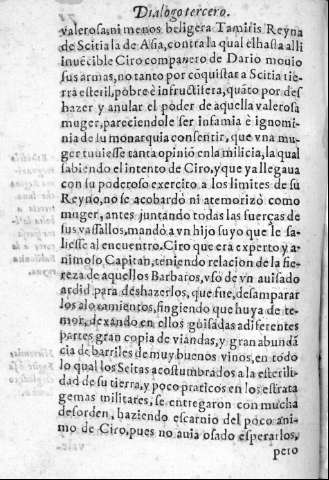 Dialogo tercero.
valerosa, ni menos beligera Tamiris Reyna
de Scitia la de Asia, contra la qual el hasta alli
inuēcible Ciro compañero de Dario mouio
sus armas, no tanto por cōquistar a Scitia tie-
rra esteril, pobre è infructifera, quāto por des
hazer y anular el poder de aquella valerosa
muger, pareciendole ser infamia è ignomi-
nia de su monarquia consentir, que vna mu-
ger tuuiesse tanta opiniō en la milicia, la qual
sabiendo el intento de Ciro, y que ya llegaua
con su poderoso exercito a los limites de su
Reyno, no se acobardò ni atemorizò como
muger, antes juntando todas las fuerças de
sus vassallos, mandò a vn hijo suyo que le sa-
liesse al encuentro. Ciro que era experto y a-
nimoso Capitan, teniendo relacion de la fie-
reza de aquellos Barbaros, vsò de vn auisado
ardid para deshazerlos, que fue, desamparar
los alojamientos, fingiendo que huya de te-
mor, dexando en ellos guisadas a diferentes
partes gran copia de viandas, y gran abundā
cia de barriles de muy buenos vinos, en todo
lo qual los Scitas acostumbrados a la esterili-
dad de su tierra, y poco praticos en los estrata
gemas militares, se entregaron con mucha
desorden, haziendo escarnio del poco ani-
mo de Ciro, pues no auia osado esperarlos,
pero